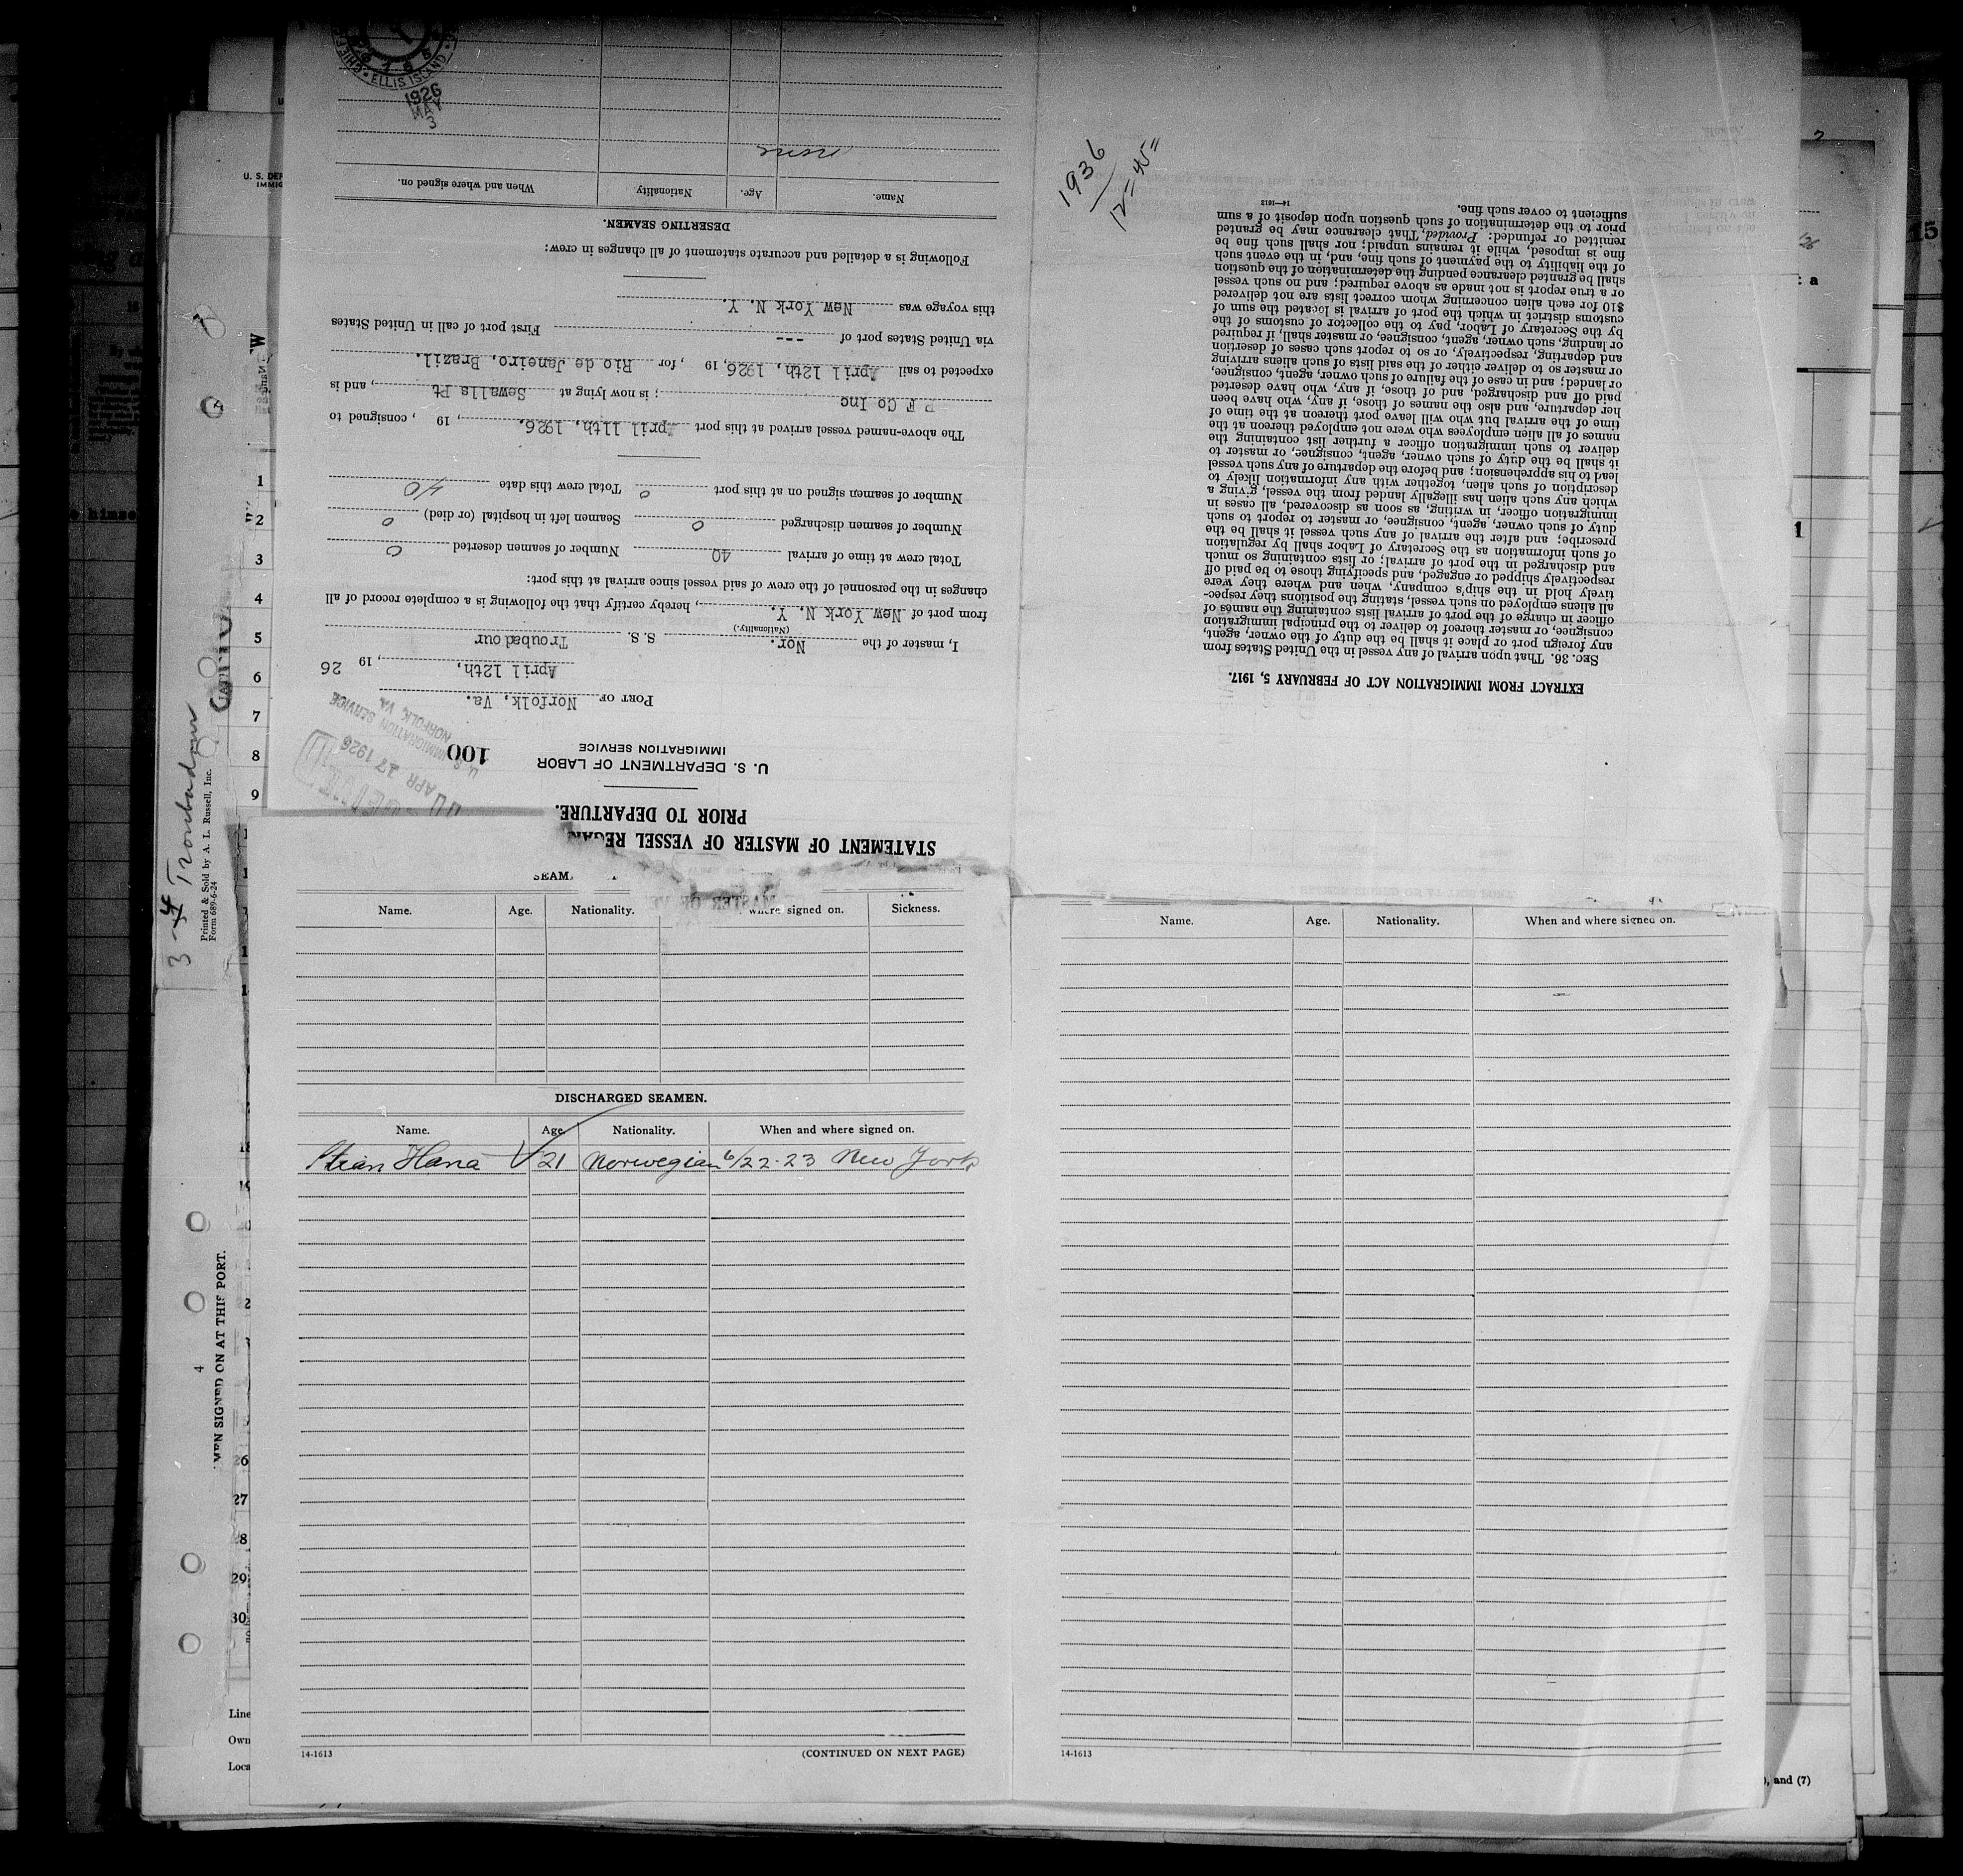 STATEMENT OF MASTER OF VESSEL
PRIOR TO DEPARTURE.
U. S. DEPARTMENT OF LABOR
IMMIGRATION SERVICE
100
U. S. IMMIGRATION SERVICE
APR 17 1926
NORFOLK, VA.
PORT OF Norfolk, Va.
April 12th, , 19 26
I, master of the Nor. S. S. Troubadour
(Nationality.)
from port of New York N. Y. , hereby certify that the following is a complete record of all
changes in the personnel of the crew of said vessel since arrival at this port:
Total crew at time of arrival 40 Number of seamen deserted 0
Number of seamen discharged 0 Seamen left in hospital (or died) 0
Number of seamen signed on at this port 0 Total crew this date 40
The above-named vessel arrived at this port April 11th, 1926. , 19 , consigned to
Co Inc ; is now lying at Sewalls Pt , and is
expected to sail April 12th, 1926, 19 , for Rio de Janeiro, Brazil.
via United States port of --- First port of call in United States
this voyage was New York N. Y.
Following is a detailed and accurate statement of all changes in crew:
DESERTING SEAMEN.
Name. Age. Nationality. When and where signed on.
none
ELLIS ISLAND
1926
MAY 3
EXTRACT FROM IMMIGRATION ACT OF FEBRUARY 5, 1917.
Sec. 36. That upon arrival of any vessel in the United States from
any foreign port or place it shall be the duty of the owner, agent,
consignee, or master thereof to deliver to the principal immigration
officer in charge of the port of arrival lists containing the names of
all aliens employed on such vessel, stating the positions they respec-
tively hold in the ship's company, when and where they were
respectively shipped or engaged, and specifying those to be paid off
and discharged in the port of arrival; or lists containing so much
of such information as the Secretary of Labor shall by regulation
prescribe; and after the arrival of any such vessel it shall be the
duty of such owner, agent, consignee, or master to report to such
immigration officer, in writing, as soon as discovered, all cases in
which any such alien has illegally landed from the vessel, giving a
description of such alien, together with any information likely to
lead to his apprehension; and before the departure of any such vessel
it shall be the duty of such owner, agent, consignee, or master to
deliver to such immigration officer a further list containing the
names of all alien employees who were not employed thereon at the
time of the arrival but who will leave port thereon at the time of
her departure, and also the names of those, if any, who have been
paid off and discharged, and of those, if any, who have deserted
or landed; and in case of the failure of such owner, agent, consignee,
or master so to deliver either of the said lists of such aliens arriving
and departing, respectively, or so to report such cases of desertion
or landing, such owner, agent, consignee, or master, shall, if required
by the Secretary of Labor, pay to the collector of customs of the
customs district in which the port of arrival is located the sum of
$10 for each alien concerning whom correct lists are not delivered
or a true report is not made as above required; and no such vessel
shall be granted clearance pending the determination of the question
of the liability to the payment of such fine, and, in the event such
fine is imposed, while it remains unpaid; nor shall such fine be
remitted or refunded: Provided, That clearance may be granted
prior to the determination of such question upon deposit of a sum
sufficient to cover such fine.
14—1613
1936
12-45"
Name. Age. Nationality. where signed on. Sickness.
DISCHARGED SEAMEN.
Name. Age. Nationality. When and where signed on.
Hana 21 Norwegian 6/22-23 New York
14-1613 (CONTINUED ON NEXT PAGE)
Name. Age. Nationality. When and where signed on.
14-1613
3-4 Troubadour
Printed & Sold by A. L. Russell, Inc.
Form 689-6-24
SIGNED ON AT THIS PORT.
4
1
2
3
4
5
6
7
8
9
26
27
28
29
30
Line
Own
Loca
15
, and (7)